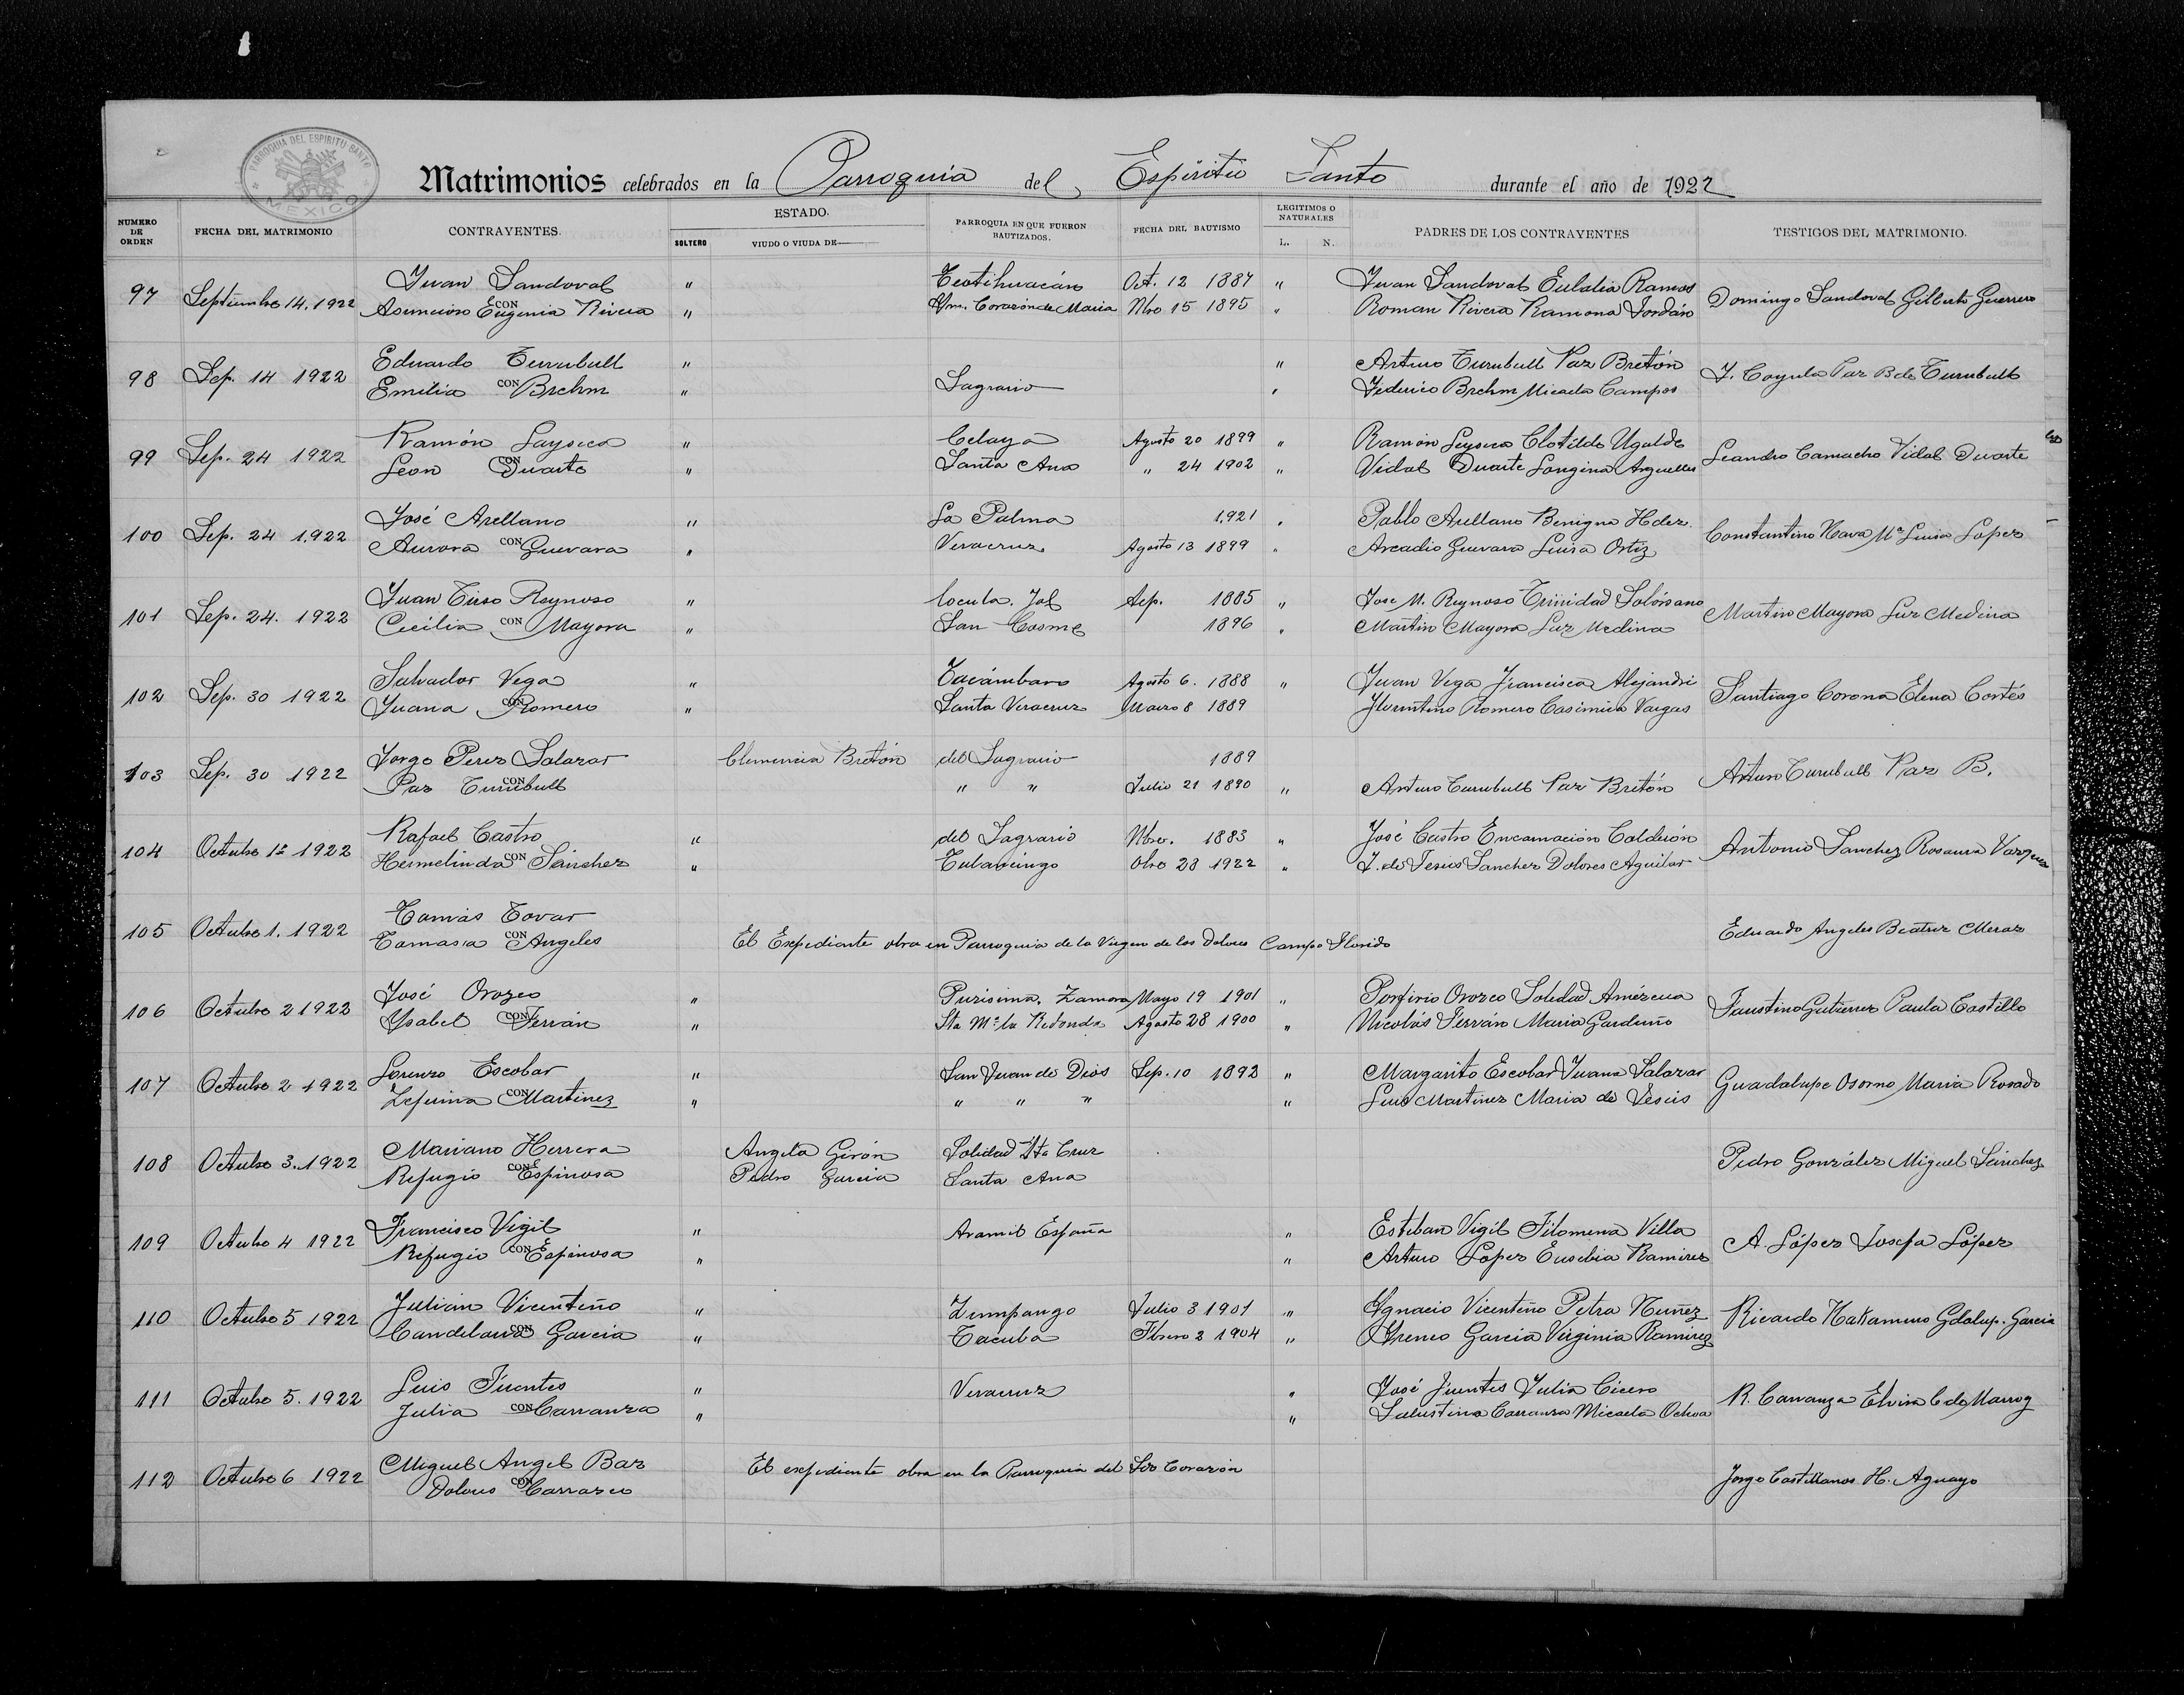 PARROQUIA DEL ESPIRITU SANTO
MEXICO
Matrimonios celebrados en la Parroquia del Espiritu Santo durante el año de 1922
NUMERO DE ORDEN FECHA DEL MATRIMONIO CONTRAYENTES. ESTADO. SOLTERO VIUDO O VIUDA DE PARROQUIA EN QUE FUERON BAUTIZADOS. FECHA DEL BAUTISMO LEGITIMOS O NATURALES L. N. PADRES DE LOS CONTRAYENTES TESTIGOS DEL MATRIMONIO.
97 Septiembre 14. 1922 Juan Sandoval " Teotihuacán Oct. 12 1887 " Juan Sandoval Eulalia Ramos Domingo Sandoval Gilberto Guerrero
CON Asuncion Eugenia Rivera " Ynm. Corazón de Maria Nbro 15 1895 " Roman Rivera Ramona Jordán
98 Sep. 14 1922 Eduardo Turnbull " " Arturo Turnbull Paz Bretón J. Cayula Paz B de Turnbull
Emilia CON Brehm " Sagrario " Federico Brehm Micaela Campos
99 Sep. 24 1922 Ramón Layseca " Celaya Agosto 20 1899 " Ramón Leyseca Clotilde Ugalde Leandro Camacho Vidal Duarte
Leon CON Duarte " Santa Ana " 24 1902 " Vidal Duarte Longina Arguelles
100 Sep. 24 1.922 José Arellano " La Palma 1.921 " Pablo Arellano Benigna Hdez. Constantino Nava Mª Luisa Lopez
Aurora CON Guevara " Veracruz Agosto 13 1899 " Arcadio Guevara Luisa Ortiz
101 Sep. 24. 1922 Juan Tirso Reynoso " Cocula. Jal Sep. 1885 " Jose M. Reynoso Trinidad Solórsano Martin Mayora Luz Medina
Cecilia CON Mayora " San Cosme 1896 " Martin Mayora Luz Medina
102 Sep. 30 1922 Salvador Vega " Tacámbaro Agosto 6. 1888 " Juan Vega Francisca Alejandri Santiago Corona Elena Cortés
Juana CON Romero " Santa Veracruz Marzo 8 1889 Florentino Romero Casimira Vargas
103 Sep. 30 1922 Jorge Perez Salazar Clemencia Bretón del Sagrario 1889 Arturo Turnbull Paz B.
Paz CON Turnbull " " Julio 21 1890 " Arturo Turnbull Paz Bretón
104 Octubre 1º 1922 Rafael Castro " del Sagrario Nbre. 1883 " José Castro Encarnación Calderón Antonio Sanchez Rosaura Vazquez
Hermelinda CON Sánchez " Tulancingo Obre 28 1922 " J. de Jesús Sanchez Dolores Aguilar
105 Octubre 1. 1922 Tomás Tovar Eduardo Angeles Beatriz Meraz
Tomasa CON Angeles El Expediente obra en Parroquia de la Virgen de los Dolores Campo Florido
106 Octubre 2 1922 José Orozco " Purisima. Zamora Mayo 19 1901 " Porfirio Orozco Soledad Amézcua Faustino Gutierrez Paula Castillo
Ysabel CON Terván " Sta Mª la Redonda Agosto 28 1900 " Nicolás Terván Maria Garduño
107 Octubre 2 1922 Lorenzo Escobar " San Juan de Dios Sep. 10 1892 " Margarito Escobar Juana Salazar Guadalupe Osorno Maria Rosado
Zeferina CON Martinez " " " " " Luis Martinez Maria de Jesús
108 Octubre 3. 1922 Mariano Herrera Angela Girón Soledad Sta Cruz Pedro González Miguel Sánchez
Refugio CON Espinosa Pedro Garcia Santa Ana
109 Octubre 4 1922 Francisco Vigil " Aramil España " Esteban Vigil Filomena Villa A. López Josefa López
Refugio CON Espinosa " " Arturo Lopez Eusebia Ramirez
110 Octubre 5 1922 Julián Vicenteño " Zumpango Julio 3 1901 " Ygnacio Vicenteño Petra Nuñez Ricardo Nakamura Gdalup. Garcia
Candelaria CON Garcia " Tacuba Fbrero 2 1904 " Yreneo Garcia Virginia Ramirez
111 Octubre 5. 1922 Luis Fuentes " Veracruz " José Fuentes Julia Cicero R. Carranza Elvira C de Marroq
Julia CON Carranza " " Salustino Carranza Micaela Ochoa
112 Octubre 6 1922 Miguel Angel Baz El expediente obra en la Parroquia del Sdo Corazón Jorge Castellanos H. Aguayo
Dolores CON Carrasco